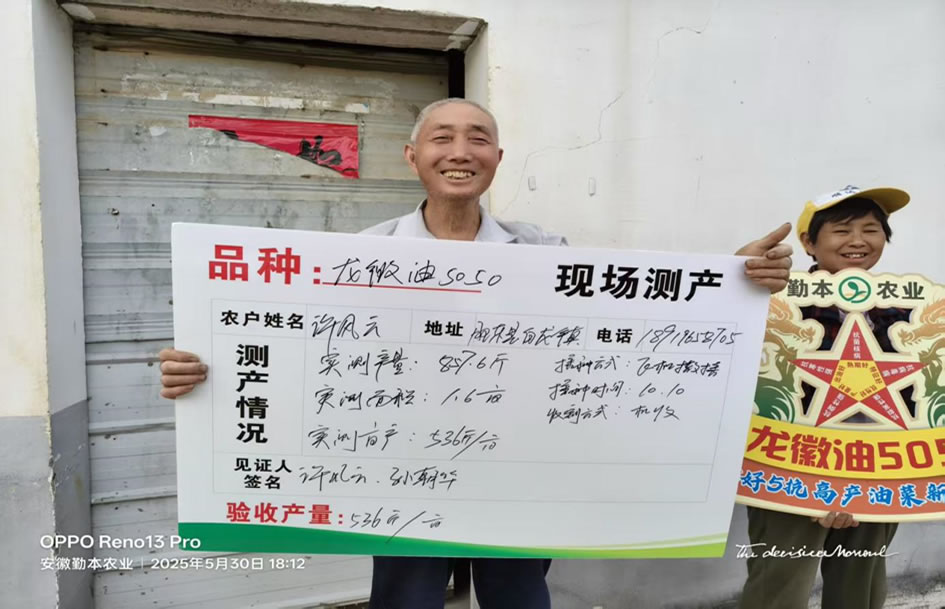 品种: 龙徽油5050 现场测产
农户姓名 许凤云 地址 肥东县白龙镇 电话
测产情况
实测产量: 857.6斤 播种方式: 飞机撒播
实测面积: 1.6亩 播种时间: 10.10
实测亩产: 536斤/亩 收割方式: 机收
见证人签名 许凤云、孙朝华
验收产量: 536斤/亩
勤本 农业
抗菌核病
龙徽油505
好5抗高产油菜新
OPPO Reno13 Pro
安徽勤本农业 | 2025年5月30日 18:12
The decisive Moment